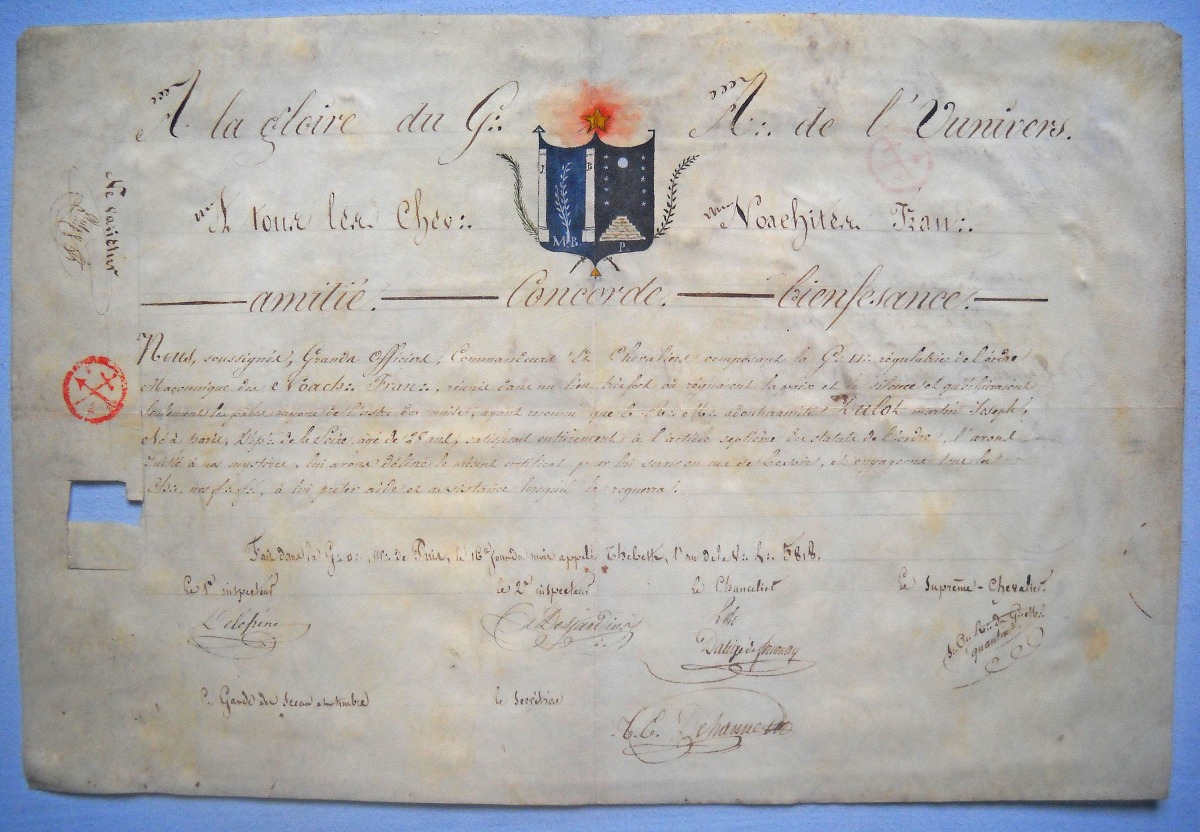 A la gloire du G∴ A∴ de l'Vunivers.
J B
M. B. P.
A tous les Chev∴ Noachites Fran∴
Ne varietur
amitié. Concorde. bienfesance.
Nous, soussignés, Grands Officiers, Commandeurs et Chevaliers composant la G∴ régulatrice de l'ordre
Maçonnique des Noach∴ Fran∴, réunis dans un lieu très fort où régnaient la paix et le silence et qu'éclairaient
seulement les pales rayons de l'astre des nuits, ayant reconnu que le martin Joseph,
Né à paris, Dép.t de la Seine, âgé de ans, satisfaisait entièrement à l'article septième des statuts de l'ordre, l'avons
Initié à nos mystères, lui avons délivré le présent certificat pour lui servir en cas de besoins, et engageons tous les
Ch∴ nos f∴, à lui prêter aide et assistance lorsqu'il le requerra.
Fait dans la G∴ de Paris, le 16e jour du mois appelé Thebeth, l'an de la V∴ L∴ 5818.
Le 1er inspecteur le 2e inspecteur le Chancelier Le Suprême-Chevalier
Delépine Desjardins
Le Garde des Sceau et timbre le Secrétaire